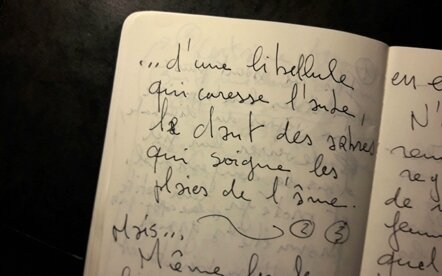 ...d'une libellule
qui caresse l'aube,
le chant des arbres
qui soigne les
plaies de l'âme.
Mais... → ② ③
Même
en e
N'
rem
reg
de
fem
quel